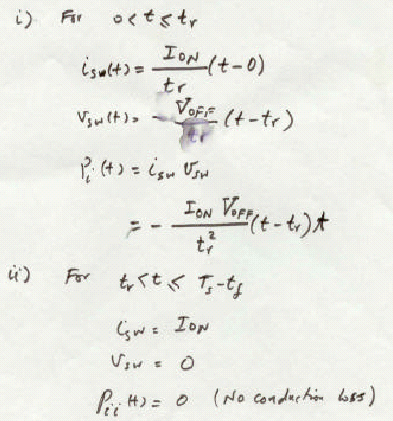 i) For 0<t≤tr
isw(t)= ION/tr (t-0)
Vsw(t)= - VOFF/tr (t-tr)
Pi(t) = isw Vsw
= - ION VOFF/tr² (t-tr)t
ii) For tr<t≤ Ts-tf
isw = ION
Vsw = 0
Pii(t) = 0 (No conduction loss)